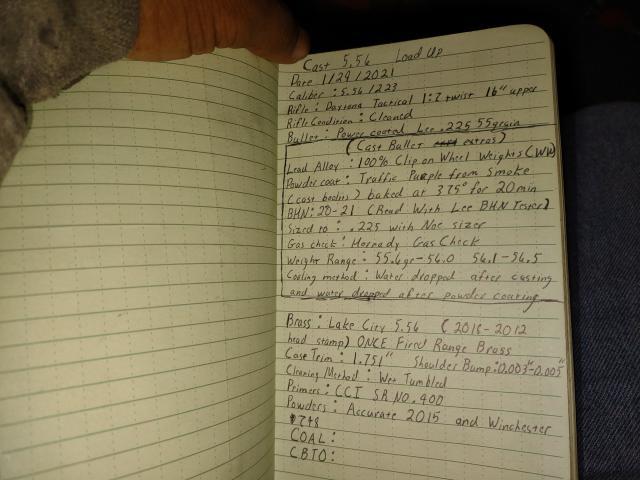 Cast 5.56 Load Up
Date 1/29/2021
Caliber : 5.56/223
Rifle : Daytona Tactical 1:7 twist 16" upper
Rifle Condition : Cleaned
Bullet : Power coated Lee .225 55grain
(Cast Bullet extras)
Lead Alloy : 100% Clip on Wheel Weights (WW)
Powder coat : Traffic Purple from Smoke
(cast boolits) baked at 375° for 20min
BHN: 20-21 (Read With Lee BHN Tester)
Sized to : .225 with Noe sizer
Gas check : Hornady Gas Check
Weight Range : 55.6gr-56.0 56.1-56.5
Cooling method : Water dropped after casting
and water dropped after powder coating
Brass : Lake City 5.56 (2016-2012
head stamp) ONCE Fired Range Brass
Case Trim : 1.751" Shoulder Bump:0.003"-0.005"
Cleaning Method : Wet Tumbled
Primers : CCI SR NO. 400
Powders : Accurate 2015 and Winchester
748
COAL :
CBTO :